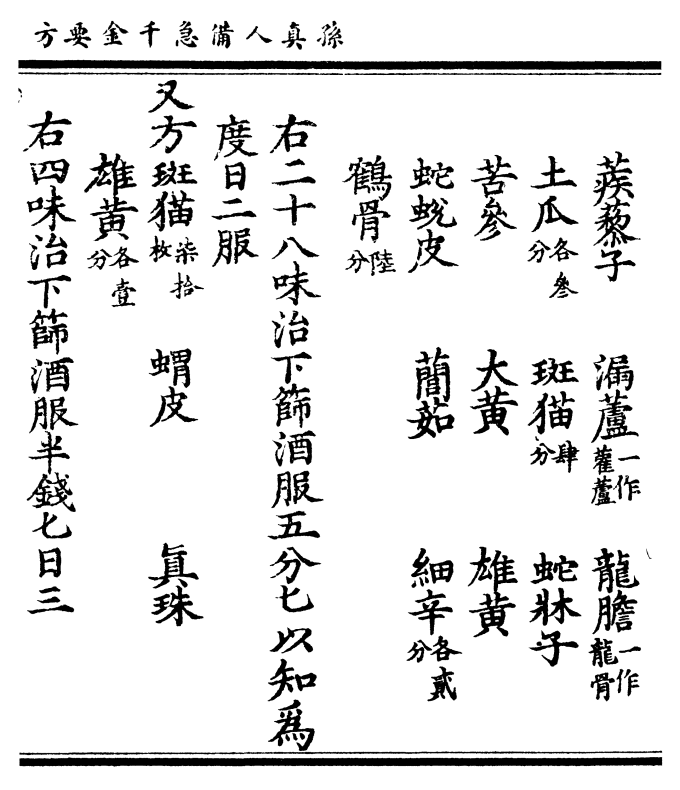 孫真人備急千金要方
蒺藜子 漏蘆一作藋蘆 龍膽一作龍骨
土瓜各叄分 斑猫肆分 蛇牀子
苦參 大黄 雄黄
蛇蛻皮 䕡茹 細辛各貳分
鶴骨陸分
右二十八味治下篩酒服五分匕以知爲
度日二服
又方斑猫柒拾枚 蝟皮 眞珠
雄黄各壹分
右四味治下篩酒服半錢匕日三